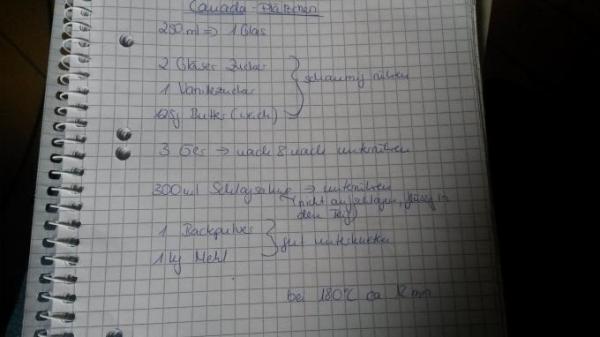 Canada-Plätzchen
250 ml => 1 Glas
2 Gläser Zucker
1 Vanillezucker } schaumig rühren
125g Butter (weich)
3 Eier → nach & nach unterrühren
300ml Schlagsahne → unterrühren
(nicht aufschlagen, flüssig in
den Teig)
1 Backpulver
1 kg Mehl } gut unterkneten
bei 180°C ca 12 min